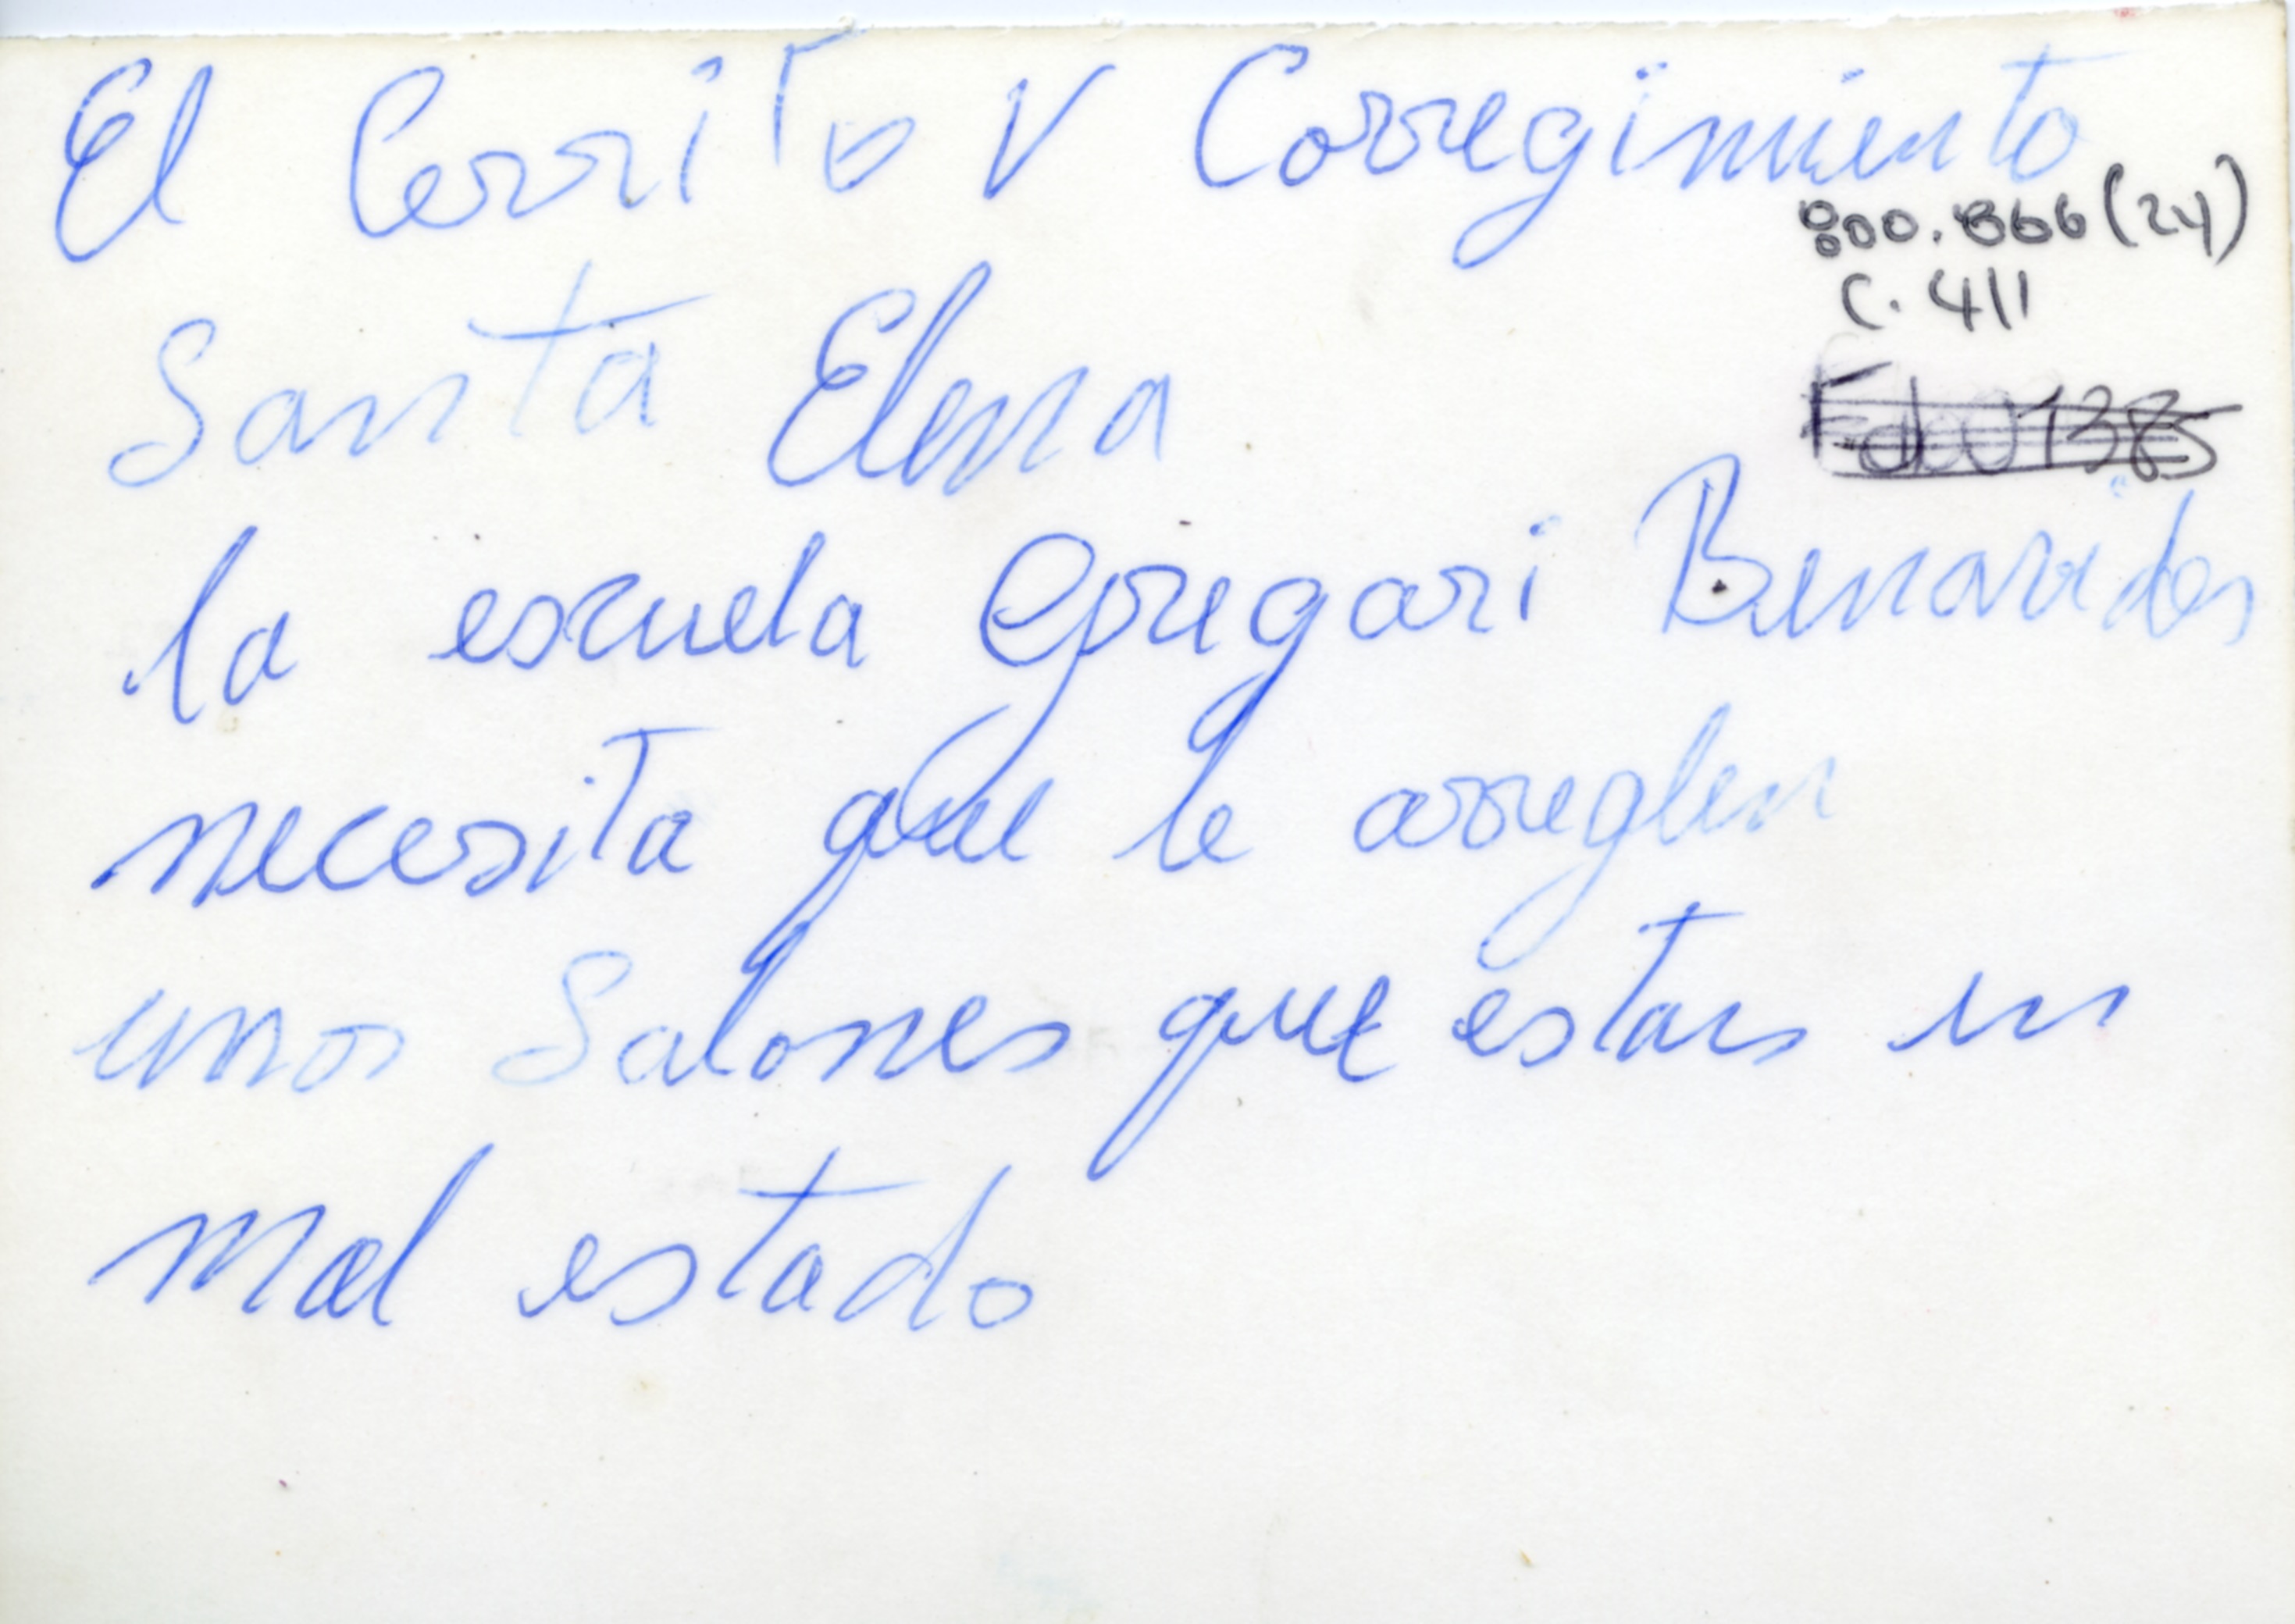 El Cerrito V Corregimiento
800.866 (24)
C. 411
Santa Elena
la escuela Gregori Benavides
necesita que le arreglen
unos Salones que estan en
mal estado